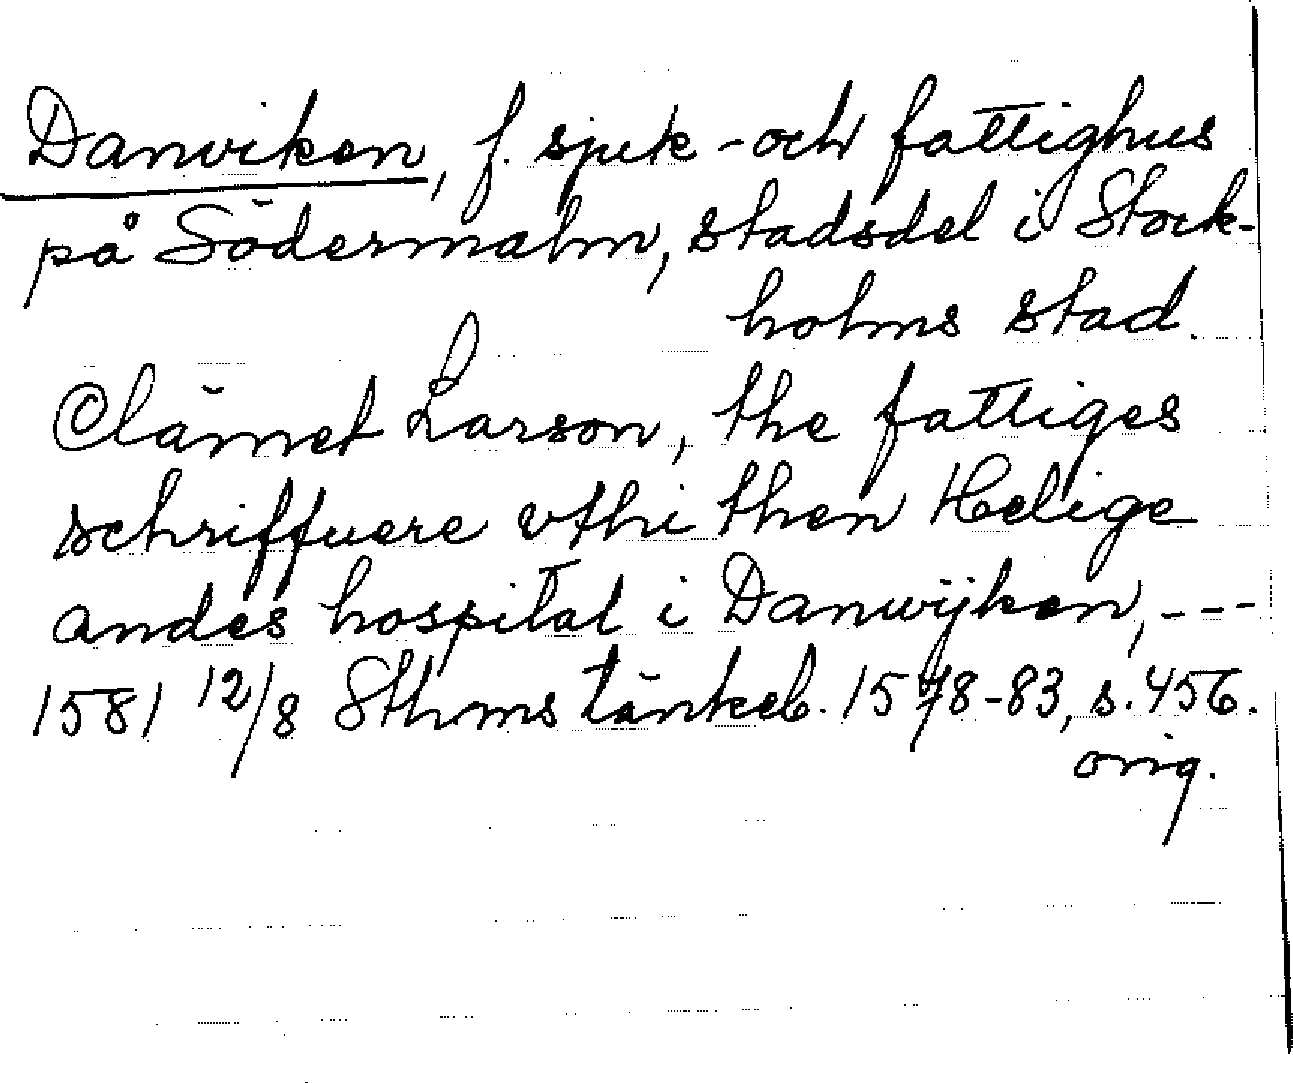 Danviken, f. sjuk- och fattighus
på Södermalm, stadsdel i Stock-
holms stad.
Clämet Larson, the fattiges
schriffuere vthi then Helige
andes hospital i Danwijken, ---
1581 12/8 Sthms tänkeb. 1578-83, s. 456.
orig.